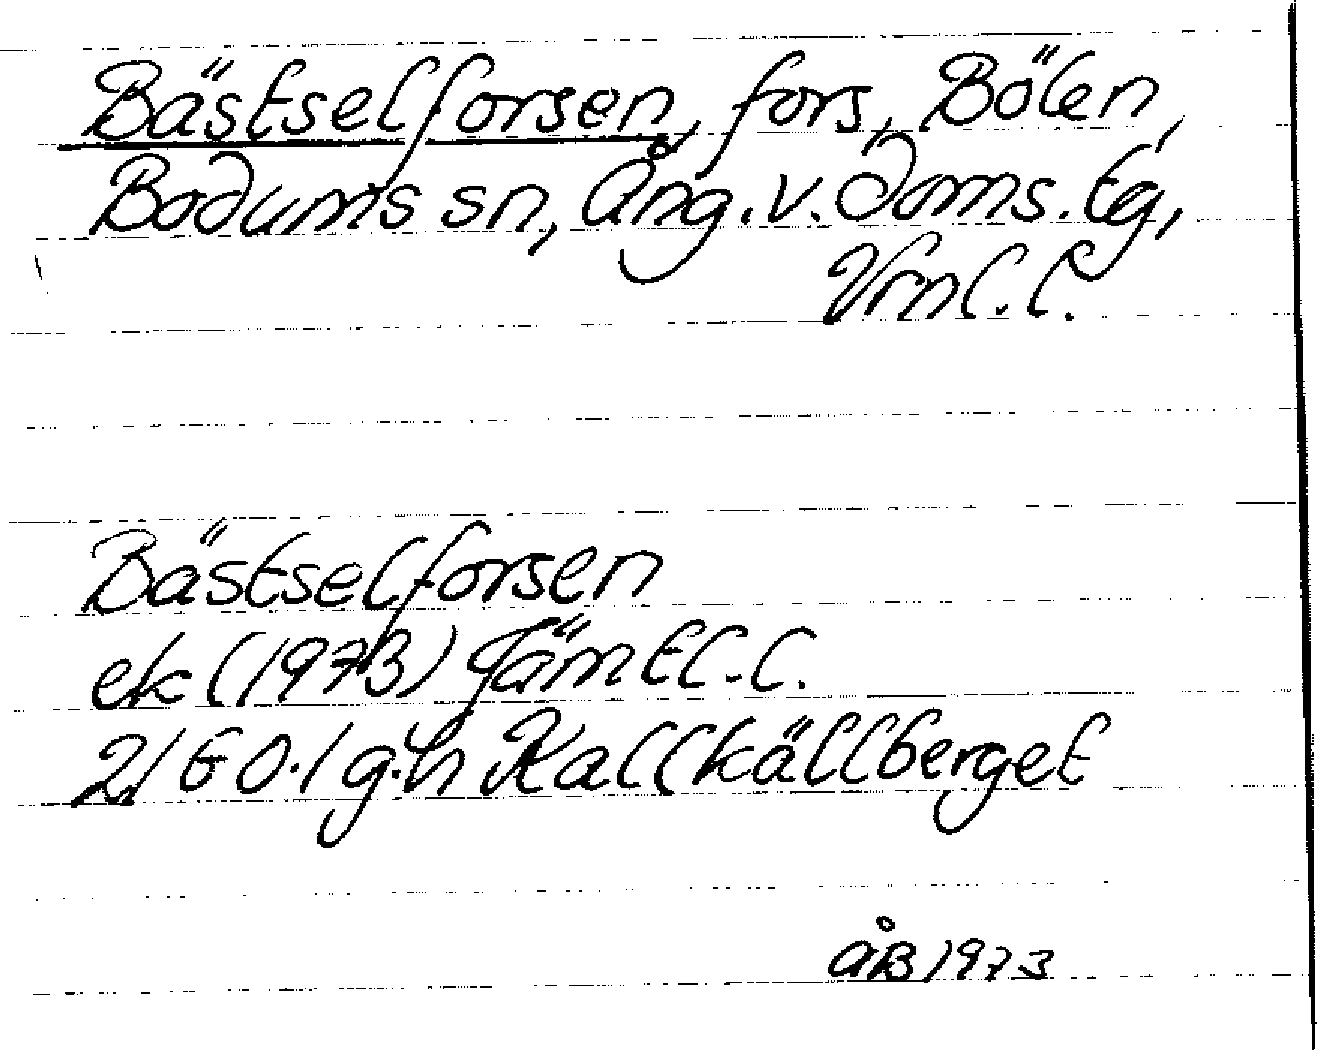 Bästselforsen, fors, Bölen,
Bodums sn, Ång.v.doms.tg,
Vrnl.l.
Bästselforsen
ek (1973) Jämtl.l.
21G0.1 g.h Kallkällberget
ÅB 1973